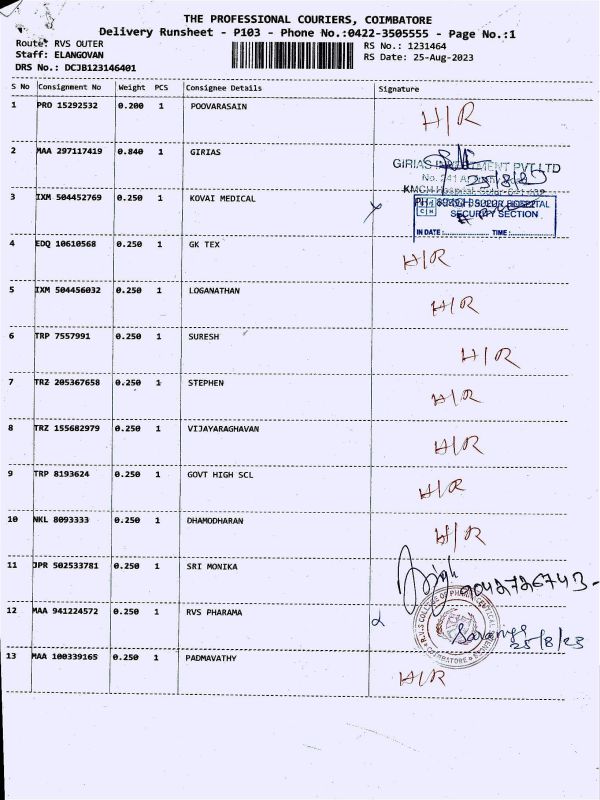 THE PROFESSIONAL COURIERS, COIMBATORE
Delivery Runsheet - P103 - Phone No.:0422-3505555 - Page No.:1
Route: RVS OUTER
RS No.: 1231464
Staff: ELANGOVAN
RS Date: 25-Aug-2023
DRS No.: DCJB123146401
S No Consignment No Weight PCS Consignee Details Signature
1 PRO 15292532 0.200 1 POOVARASAIN H/R
2 MAA 297117419 0.840 1 GIRIAS
GIRIAS PVT LTD
25/8/23
3 IXM 504452769 0.250 1 KOVAI MEDICAL
SECURITY SECTION
IN DATE: TIME:
4 EDQ 10610568 0.250 1 GK TEX H/R
5 IXM 504456032 0.250 1 LOGANATHAN H/R
6 TRP 7557991 0.250 1 SURESH H/R
7 TRZ 205367658 0.250 1 STEPHEN H/R
8 TRZ 155682979 0.250 1 VIJAYARAGHAVAN H/R
9 TRP 8193624 0.250 1 GOVT HIGH SCL H/R
10 NKL 8093333 0.250 1 DHAMODHARAN H/R
11 JPR 502533781 0.250 1 SRI MONIKA
12 MAA 941224572 0.250 1 RVS PHARAMA 25/8/23
13 MAA 100339165 0.250 1 PADMAVATHY H/R